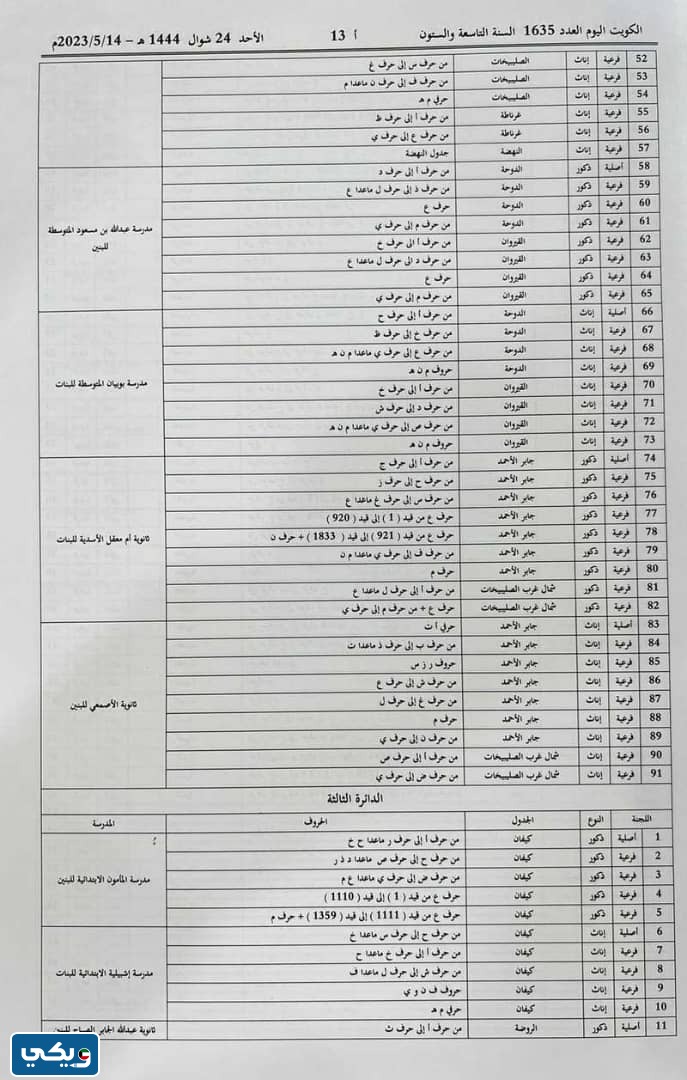 الكويت اليوم العدد 1635 السنة التاسعة والستون أ 13 الأحد 24 شوال 1444 هـ – 2023/5/14م
52 فرعية إناث الصليبيخات من حرف س إلى حرف غ
53 فرعية إناث الصليبيخات من حرف ف إلى حرف ن ماعدا م
54 فرعية إناث الصليبيخات حرفي م هـ
55 فرعية إناث غرناطة من حرف أ إلى حرف ظ
56 فرعية إناث غرناطة من حرف ع إلى حرف ي
57 فرعية إناث النهضة جدول النهضة
58 أصلية ذكور الدوحة من حرف أ إلى حرف د
59 فرعية ذكور الدوحة من حرف ذ إلى حرف ل ماعدا ع
60 فرعية ذكور الدوحة حرف ع
61 فرعية ذكور الدوحة من حرف م إلى حرف ي
مدرسة عبدالله بن مسعود المتوسطة للبنين
62 فرعية ذكور القيروان من حرف أ الى حرف خ
63 فرعية ذكور القيروان من حرف د الى حرف ل ماعدا ع
64 فرعية ذكور القيروان حرف ع
65 فرعية ذكور القيروان من حرف م إلى حرف ي
66 أصلية إناث الدوحة من حرف أ إلى حرف ح
67 فرعية إناث الدوحة من حرف خ إلى حرف ظ
68 فرعية إناث الدوحة من حرف ع إلى حرف ي ماعدا م ن هـ
69 فرعية إناث الدوحة حروف م ن هـ
مدرسة بوبيان المتوسطة للبنات
70 فرعية إناث القيروان من حرف أ إلى حرف خ
71 فرعية إناث القيروان من حرف د إلى حرف ش
72 فرعية إناث القيروان من حرف ص إلى حرف ي ماعدا م ن هـ
73 فرعية إناث القيروان حروف م ن هـ
74 أصلية ذكور جابر الأحمد من حرف أ إلى حرف ج
75 فرعية ذكور جابر الأحمد من حرف ح إلى حرف ز
76 فرعية ذكور جابر الأحمد من حرف س إلى حرف غ ماعدا ع
77 فرعية ذكور جابر الأحمد حرف ع من قيد ( 1 ) إلى قيد ( 920 )
78 فرعية ذكور جابر الأحمد حرف ع من قيد ( 921 ) إلى قيد ( 1833 ) + حرف ن
ثانوية أم معقل الأسدية للبنات
79 فرعية ذكور جابر الأحمد من حرف ف إلى حرف ي ماعدا م ن
80 فرعية ذكور جابر الأحمد حرف م
81 فرعية ذكور شمال غرب الصليبيخات من حرف أ إلى حرف ل ماعدا ع
82 فرعية ذكور شمال غرب الصليبيخات حرف ع + من حرف م إلى حرف ي
83 أصلية إناث جابر الأحمد حرفي أ ت
84 فرعية إناث جابر الأحمد من حرف ب إلى حرف ذ ماعدا ت
85 فرعية إناث جابر الأحمد حروف ر ز س
86 فرعية إناث جابر الأحمد من حرف ش إلى حرف ع
87 فرعية إناث جابر الأحمد من حرف غ إلى حرف ل
ثانوية الأصمعي للبنين
88 فرعية إناث جابر الأحمد حرف م
89 فرعية إناث جابر الأحمد من حرف ن إلى حرف ي
90 فرعية إناث شمال غرب الصليبيخات من حرف أ إلى حرف ص
91 فرعية إناث شمال غرب الصليبيخات من حرف ض إلى حرف ي
الدائرة الثالثة
اللجنة النوع الجدول الحروف المدرسة
1 أصلية ذكور كيفان من حرف أ إلى حرف ر ماعدا ح خ
2 فرعية ذكور كيفان من حرف ح إلى حرف ص ماعدا د ذ ر
3 فرعية ذكور كيفان من حرف ض إلى حرف ي ماعدا ع م
مدرسة المأمون الابتدائية للبنين
4 فرعية ذكور كيفان حرف ع من قيد ( 1 ) إلى قيد ( 1110 )
5 فرعية ذكور كيفان حرف ع من قيد ( 1111 ) إلى قيد ( 1359 ) + حرف م
6 أصلية إناث كيفان من حرف ح إلى حرف س ماعدا خ
7 فرعية إناث كيفان من حرف أ إلى حرف خ ماعدا ح
8 فرعية إناث كيفان من حرف ش إلى حرف ل ماعدا ف
مدرسة إشبيلية الابتدائية للبنات
9 فرعية إناث كيفان حروف ف ن و ي
10 فرعية إناث كيفان حرفي م هـ
11 أصلية ذكور الروضة من حرف أ إلى حرف ث ثانوية عبدالله الجابر الصباح للبنين
ويكي